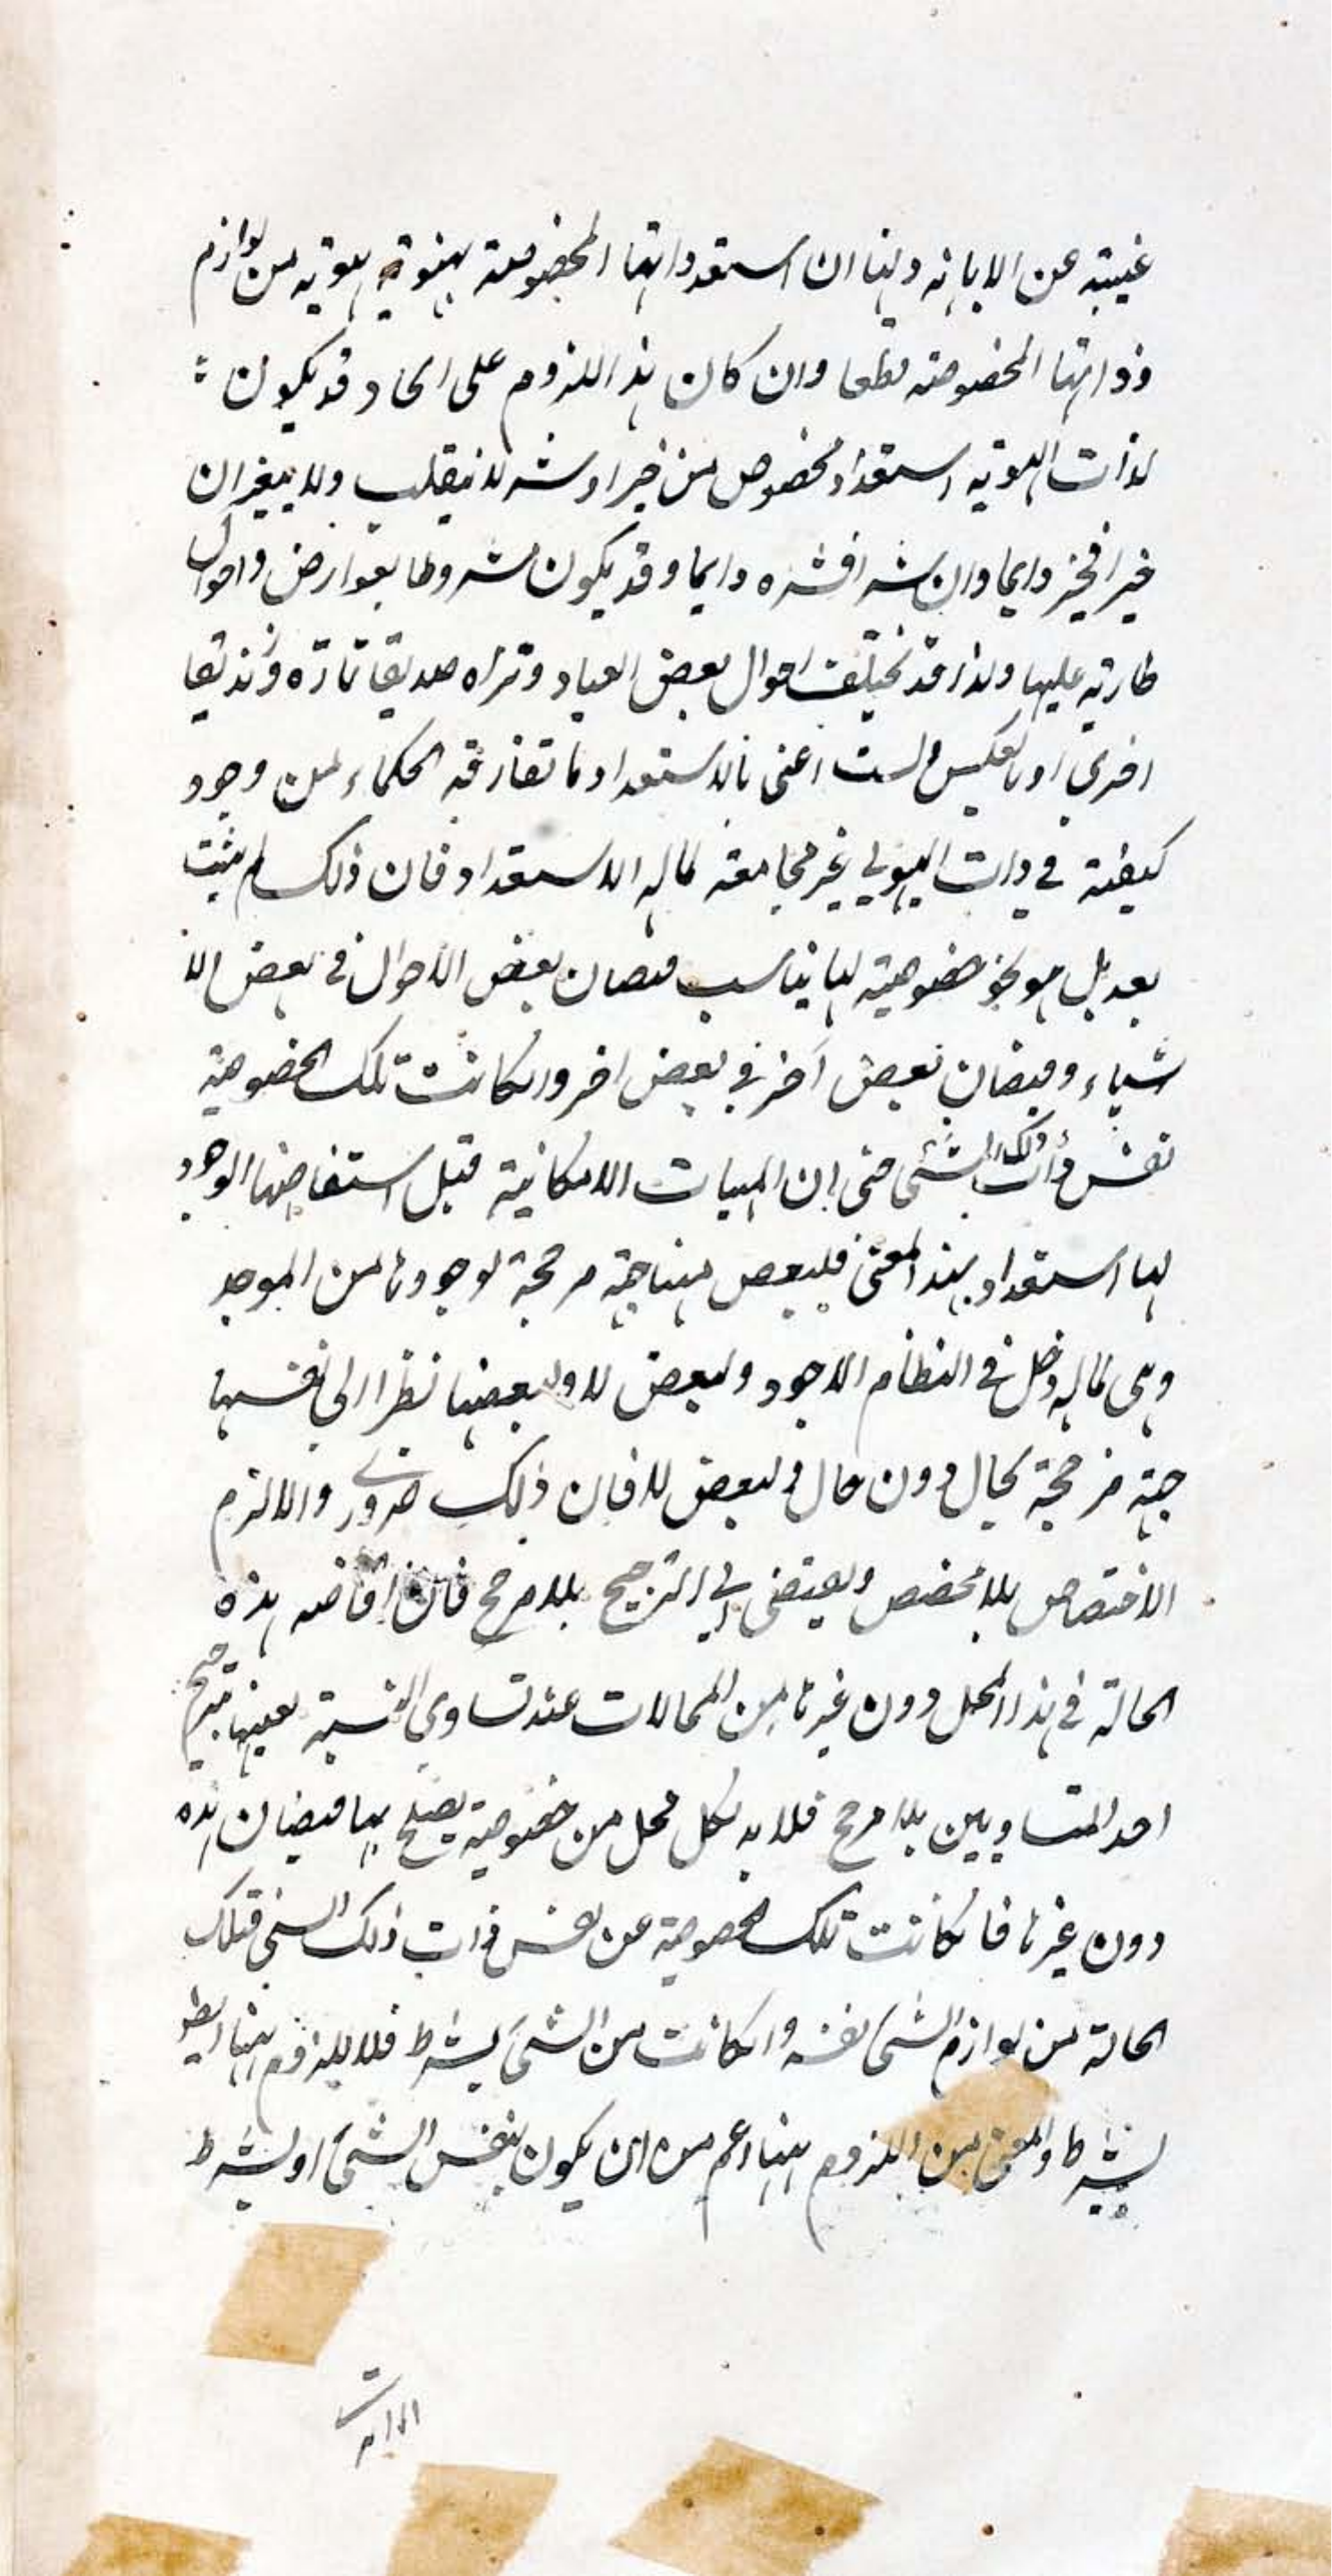 غنيته عن الابانه وبينا ان استعداداتها المخصوصة بهوية هوية من لوازم
ذواتها المخصوصه قطعا وان كان هذا اللزوم على انحاء قد يكون
لذات الهويه استعداد مخصوص من خير او شر لا ينقلب ولا يتغير ان
خيرا فخير دايما وان شرا فشره دايما وقد يكون مشروطا بعوارض واحوال
طاريه عليها ولذا قد تختلف احوال بعض العباد وتراه صديقا تارة وزنديقا
اخرى او بالعكس ولست اعنى بالاستعداد ما تفارقه الحكماء من وجود
كيفيته في ذات الهيولي غير مجامعة لما له الاستعداد فان ذلك لم يثبت
بعد بل هو نحو خصوصية لها يناسب فيضان بعض الاحوال في بعض الا
شياء وفيضان بعض آخر في بعض اخر وركانت تلك الخصوصية
نفس ذات ذلك الشئ حتى ان المهيات الامكانية قبل استفاضتها الوجود
لها استعداد بهذا المعنى فلبعض منها جهة مرجحة لوجودها من الموجد
وهى لما له دخل في النظام الاجود ولبعض لا ولبعضها نظرا الى نفسها
جهة مرجحة بحال دون حال ولبعض لا فان ذلك ضرورى والا لزم
الاختصاص بلا مخصص ويفضى الي الترجيح بلا مرجح فان افاضه هذه
الحالة في هذا المحل دون غيرها من المحالات عند تساوى النسبة بعينها ترجيح
احد المتساويين بلا مرجح فلا بد لكل محل من خصوصية يصلح بها فيضان هذه
دون غيرها فا نكانت تلك الخصوصية عن نفس ذات ذلك الشئ فتلك
الحالة من لوازم الشئ نفسه وانكانت من الشئ بشرط فلا يلزوم هنا ايضا
بشرط والمعنى من اللزوم هنا اعم من ان يكون بنفس الشئ او بشرط